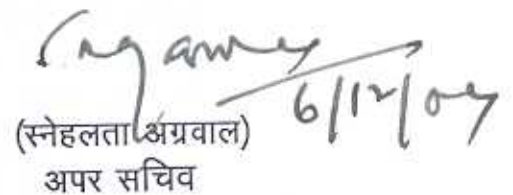 6/12/07
(स्नेहलता अग्रवाल)
अपर सचिव